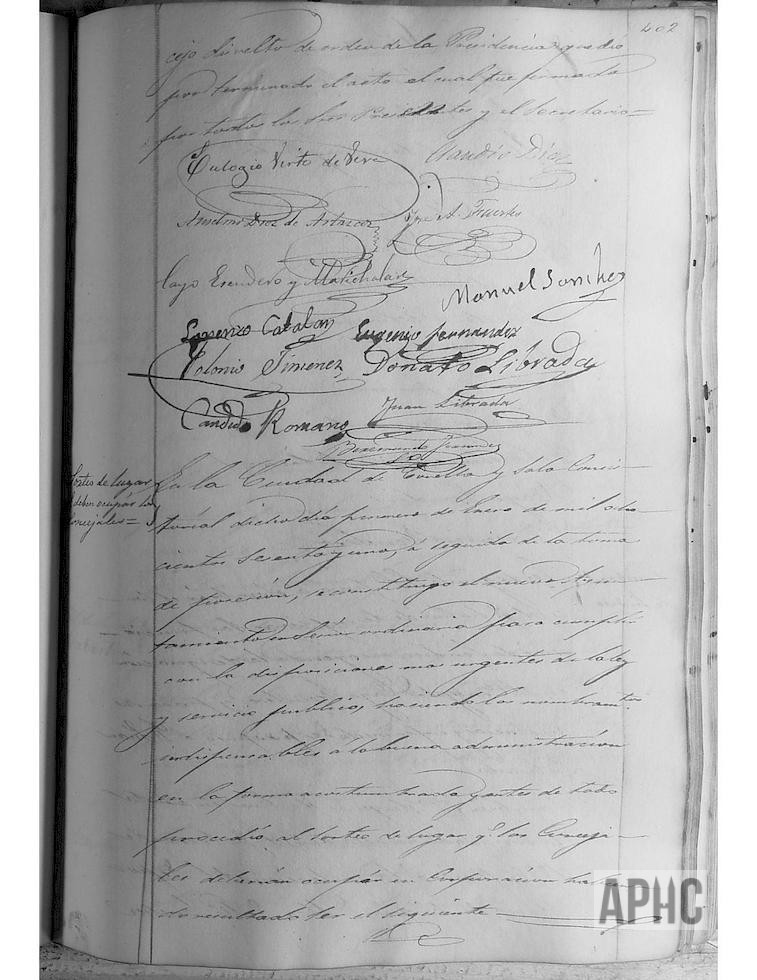 402
cejo disuelto de orden de la Presidencia quedó
por terminado el acto el cual fue firmado
por todos los Sres Presidentes y el Secretario=
Eulogio Virto de Vera Claudio Diaz
Anselmo Diez de Artazcoz José A. Fuertes
Cayo Escudero y Marichalar
Manuel Sanchez
Lorenzo Catalan Eugenio Fernandez
Polonio Jimenez Donato Librada
Candido Romano Juan Librada
Sorteo de lugar
deben ocupar los
concejales=
En la Ciudad de Corella y Sala Consis-
torial dicho día primero de Enero de mil ocho
cientos sesenta y uno, á seguida de la toma
de posesión, se constituyó el nuevo Ayun-
tamiento en Sesión ordinaria para cumplir
con la disposiciones mas urgentes de la ley
y servicio publico, haciendo los nombramtos
indispensables a la buena administración
en la forma acostumbrada y antes de todo
procedió al sorteo de lugar qe los Conceja-
les deberán ocupar en Corporación
do resultado ser el siguiente
APHC